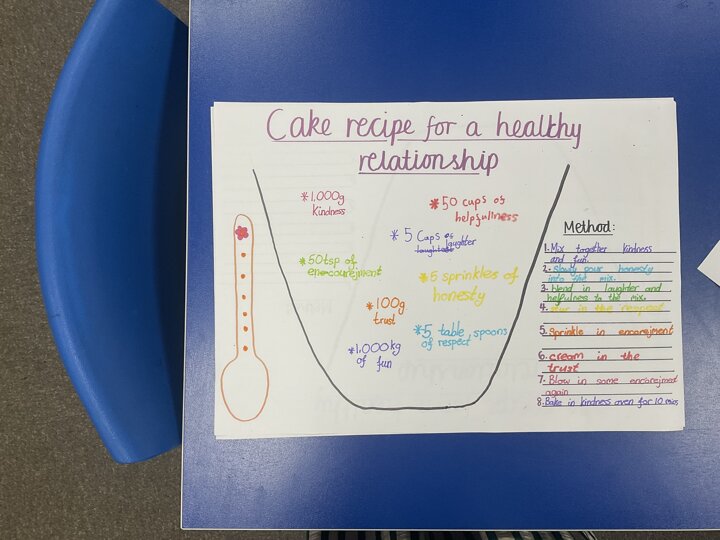 Cake recipe for a healthy
relationship
*1,000g
Kindness
*50 cups of
helpfullness
* 5 Cups of
laughter
*50tsp of
encourejment
*5 sprinkles of
honesty
*100g
trust
*5 table spoons
of respect
*1,000kg
of fun
Method:
1. Mix together kindness
and fun.
2. Slowly pour honesty
into the mix.
3. blend in laughter and
helfulness to the mix.
4. Stur in the respect
5. Sprinkle in encorejment
6. cream in the
trust
7. Blow in some encorejment
again
8. Bake in kindness oven for 10 mins